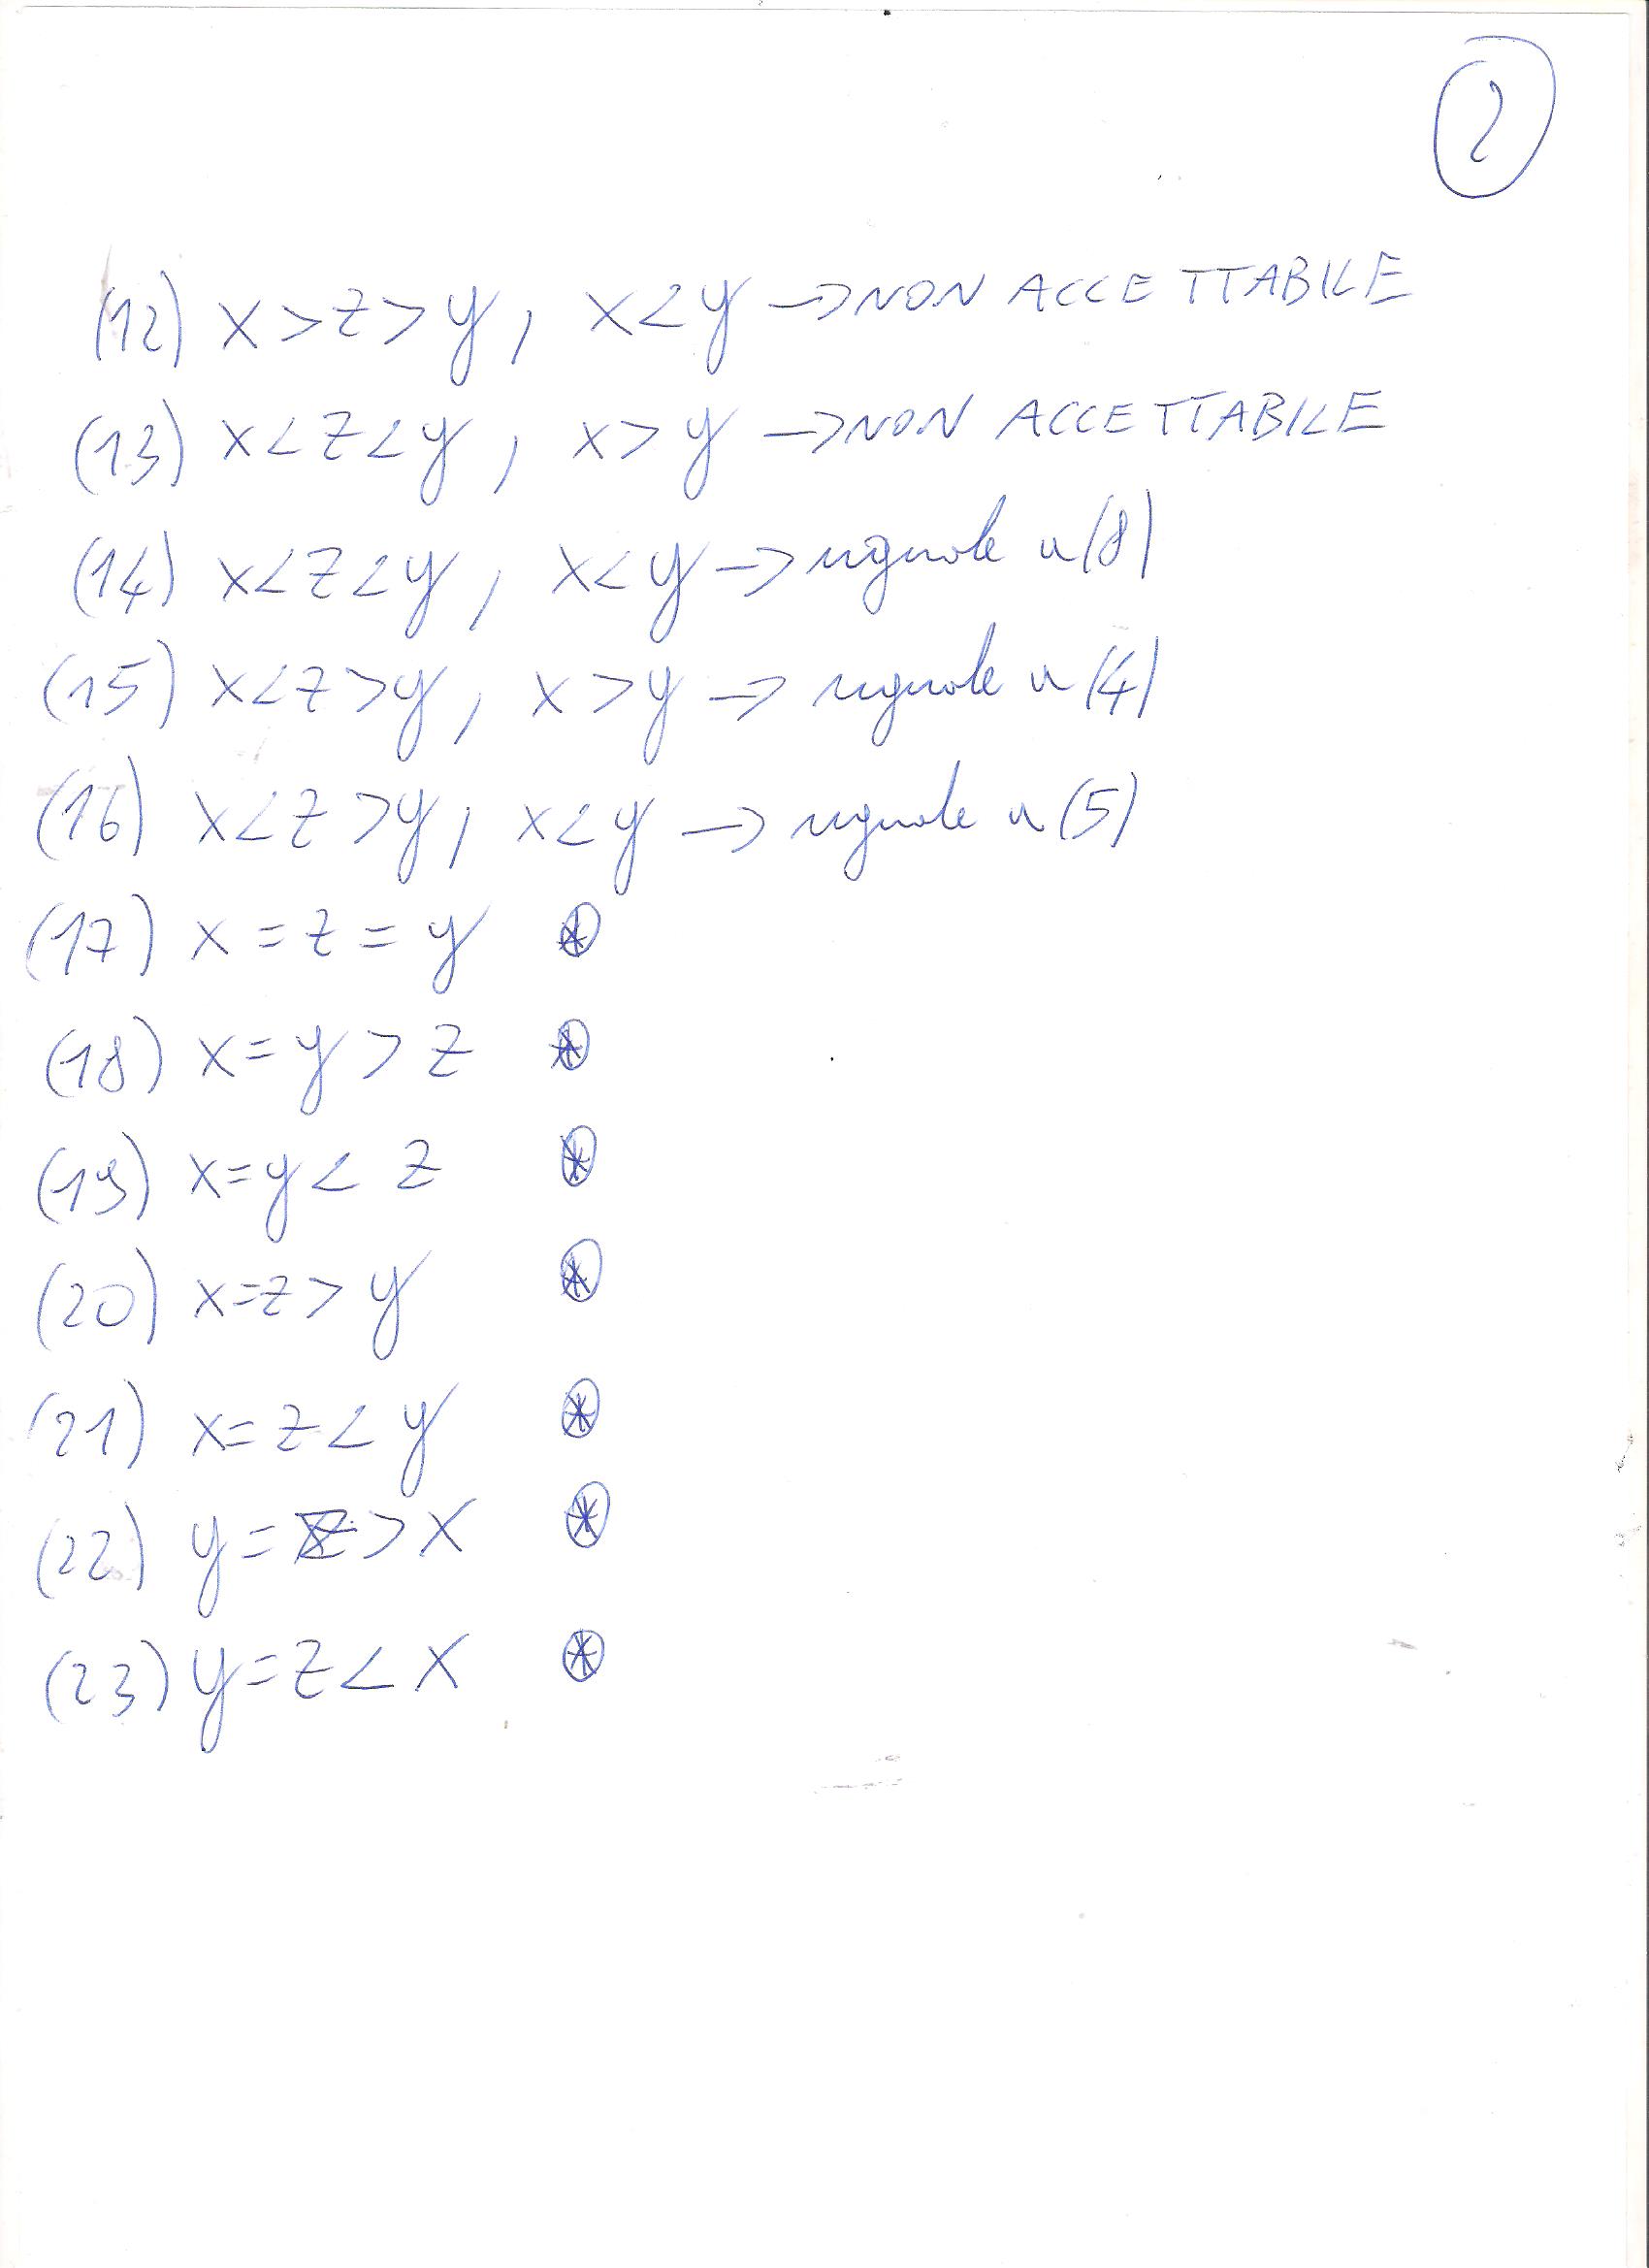 2
(12) x>z>y, x<y →NON ACCETTABILE
(13) x<z<y, x>y →NON ACCETTABILE
(14) x<z<y, x<y → uguale a (8)
(15) x<z>y, x>y → uguale a (4)
(16) x<z>y, x<y → uguale a (5)
(17) x=z=y ⊛
(18) x=y>z ⊛
(19) x=y<z ⊛
(20) x=z>y ⊛
(21) x=z<y ⊛
(22) y=z>x ⊛
(23) y=z<x ⊛